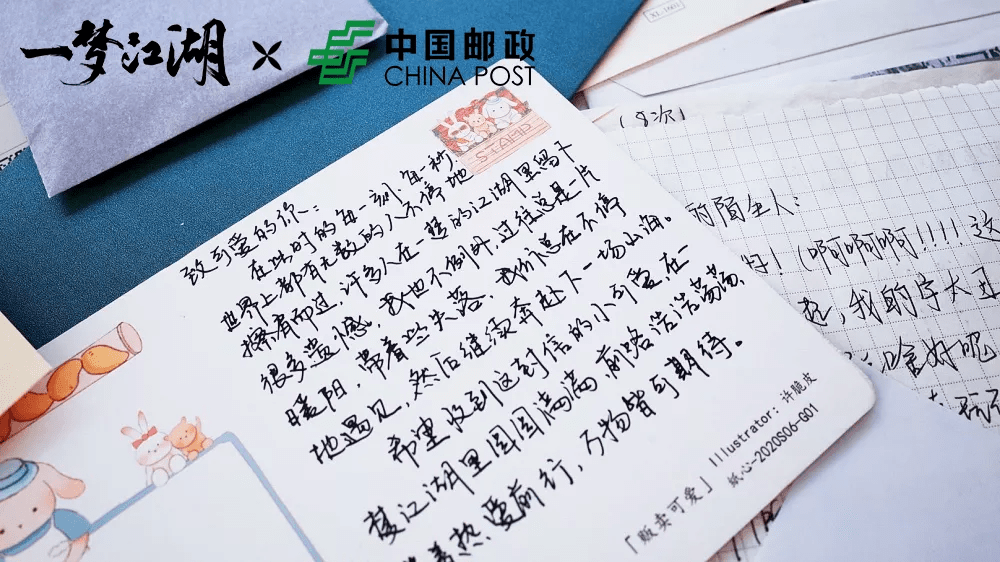 一梦江湖
中国邮政
CHINA POST
XL-1601
STAMP
致可爱的你:
在此时的每一刻、每一秒,
世界上都有无数的人不停地
擦肩而过,许多人在一梦的江湖里留下
很多遗憾,我也不例外,过往总是一片
暖阳,带着些失落,我们总在不停
地遇见,然后继续奔赴下一场山海。
希望收到这封信的小可爱,在
梦江湖里圆圆满满,前路浩浩荡荡,
着热爱前行,万物皆可期待。
「贩卖可爱」 Illustrator:许脆皮
纸心-2020S06-G01
(8次)
的陌生人:
好!(啊啊啊啊!!!!这
我的字太丑
啥好呢